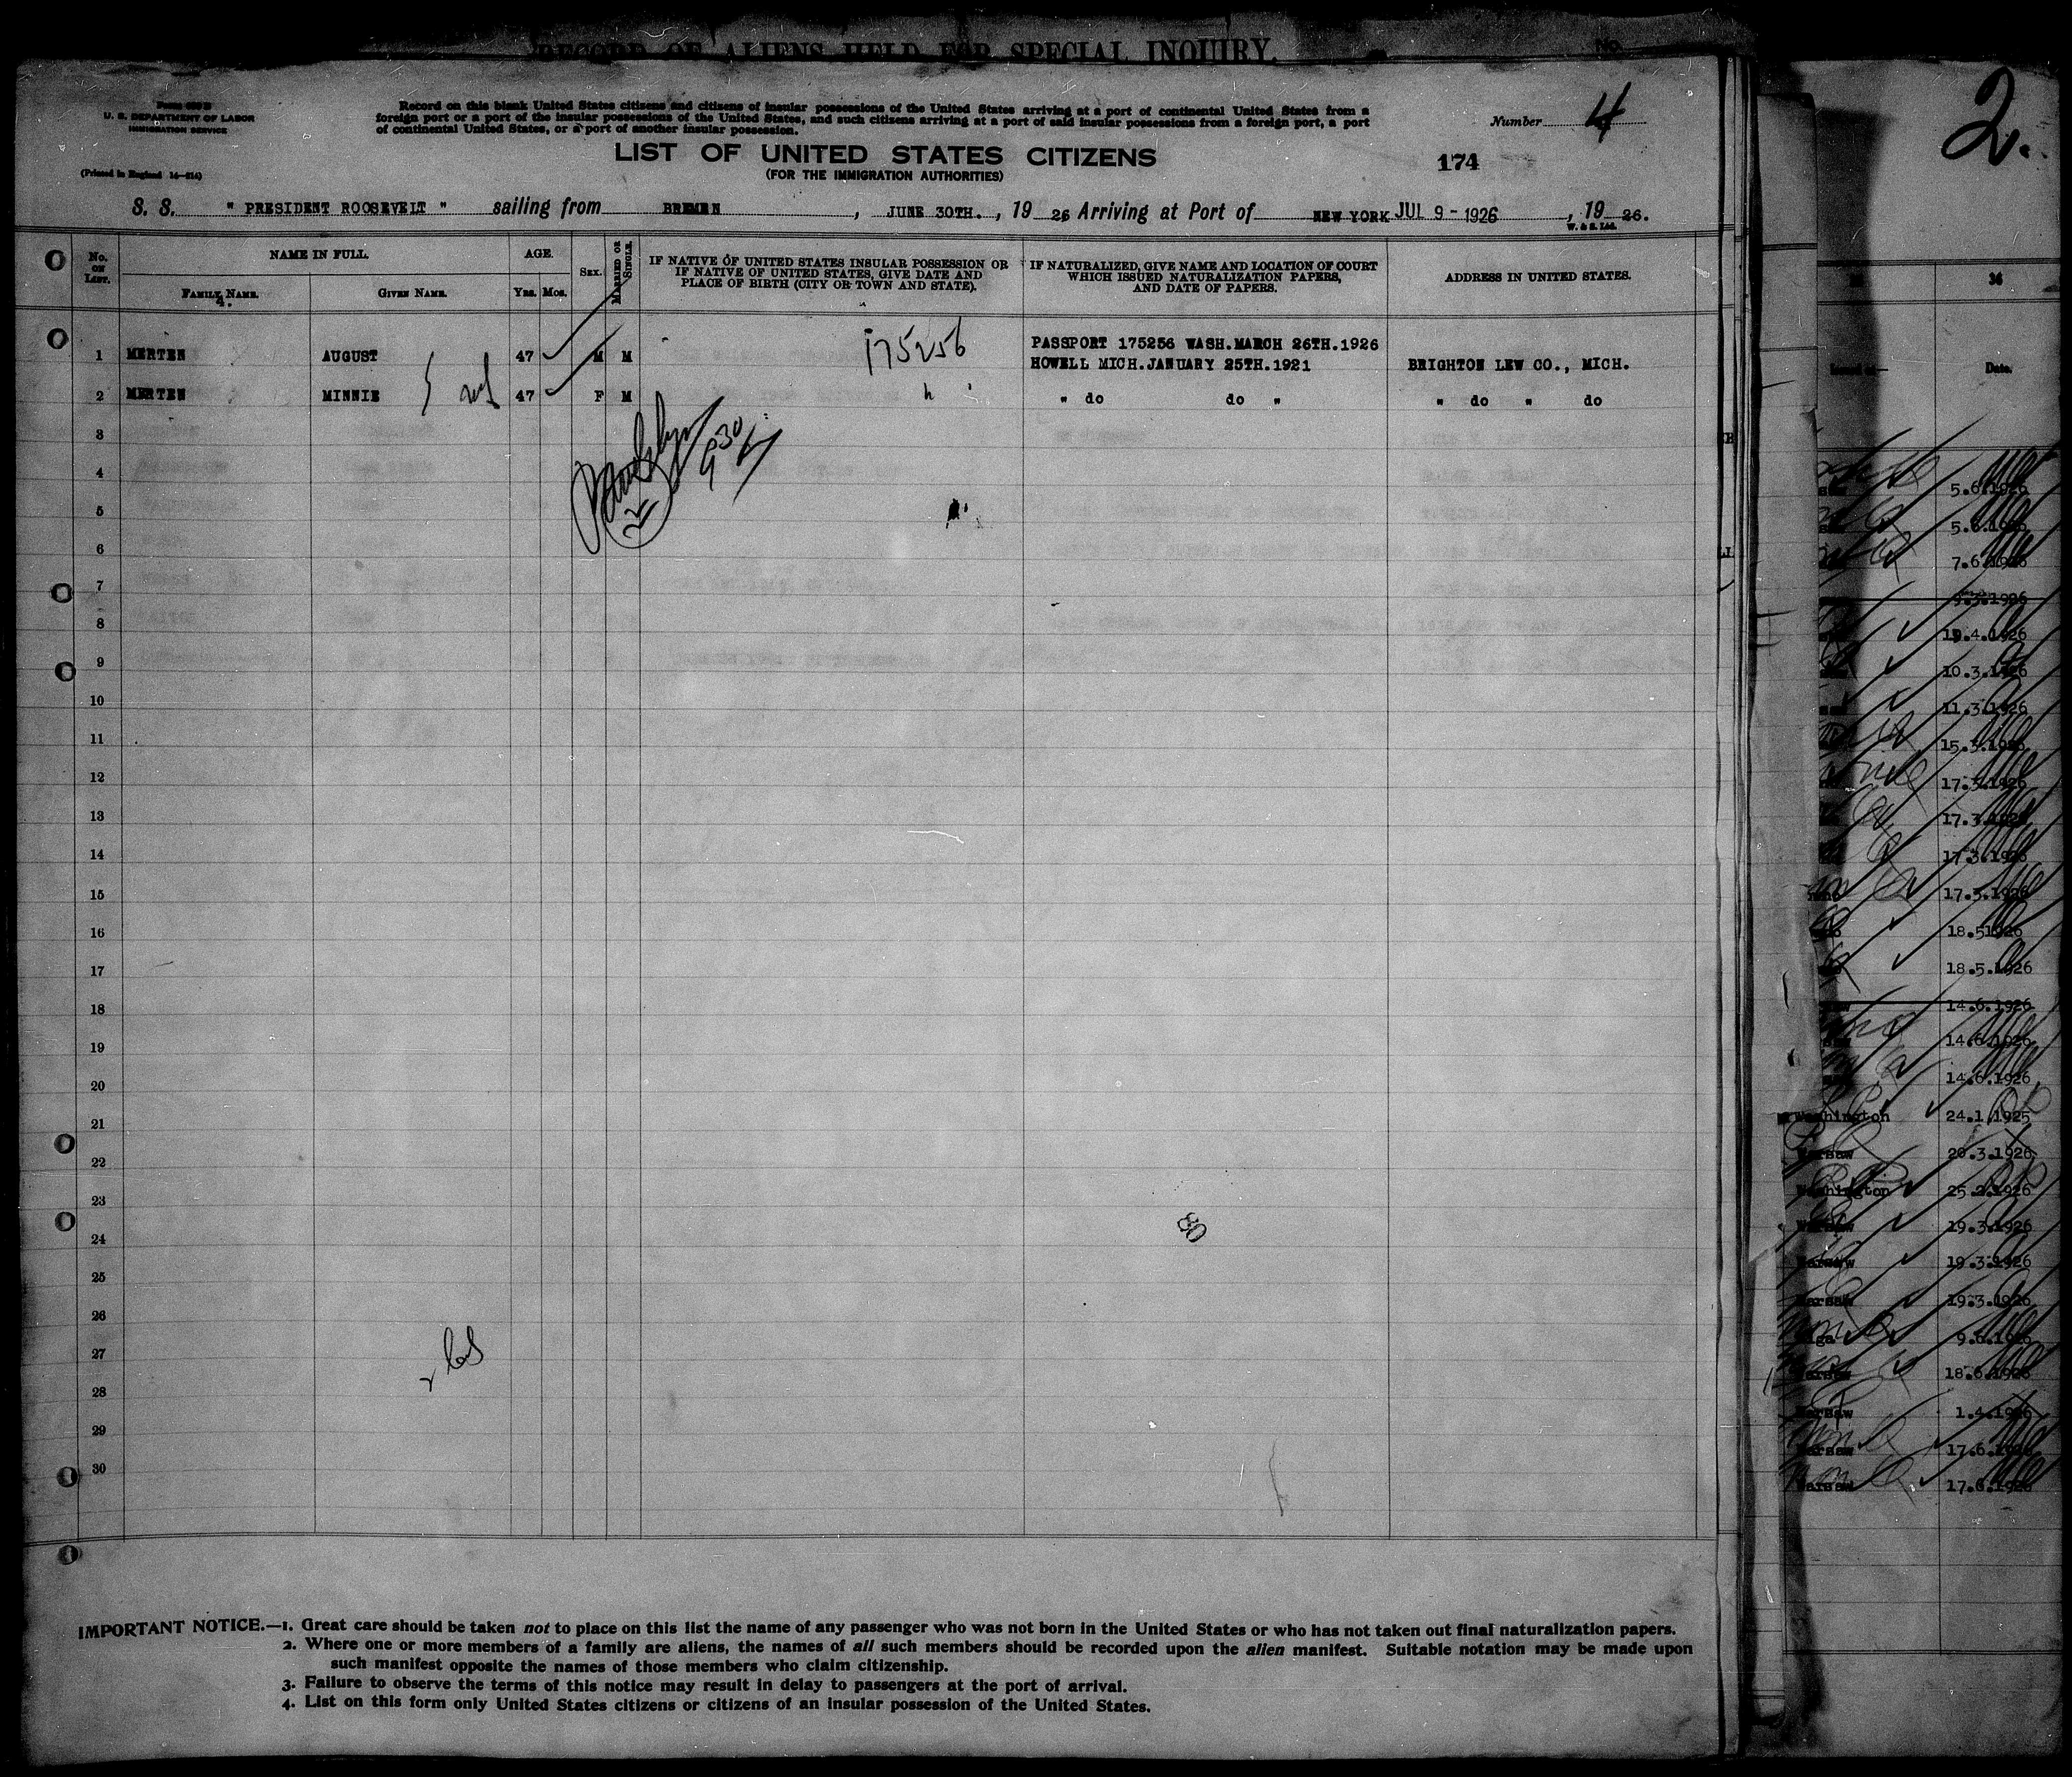 RECORD OF ALIENS HELD FOR SPECIAL INQUIRY.
No.
Form 630 B
U. S. DEPARTMENT OF LABOR
IMMIGRATION SERVICE
(Printed in England 14—214)
Record on this blank United States citizens and citizens of insular possessions of the United States arriving at a port of continental United States from a
foreign port or a port of the insular possessions of the United States, and such citizens arriving at a port of said insular possessions from a foreign port, a port
of continental United States, or a port of another insular possession.
Number 4
LIST OF UNITED STATES CITIZENS
(FOR THE IMMIGRATION AUTHORITIES)
174
S. S. " PRESIDENT ROOSEVELT " sailing from BREMEN, JUNE 30TH., 19 26 Arriving at Port of NEW YORK JUL 9 - 1926, 19 26.
W. & S. Ltd.
No. ON LIST.
NAME IN FULL.
FAMILY NAME.
4.
GIVEN NAME.
AGE.
YRS. MOS.
SEX.
MARRIED OR SINGLE.
IF NATIVE OF UNITED STATES INSULAR POSSESSION OR
IF NATIVE OF UNITED STATES, GIVE DATE AND
PLACE OF BIRTH (CITY OR TOWN AND STATE).
IF NATURALIZED, GIVE NAME AND LOCATION OF COURT
WHICH ISSUED NATURALIZATION PAPERS,
AND DATE OF PAPERS.
ADDRESS IN UNITED STATES.
1 MERTEN AUGUST 47 M M 175256 PASSPORT 175256 WASH.MARCH 26TH.1926
HOWELL MICH.JANUARY 25TH.1921 BRIGHTON LEW CO., MICH.
2 MERTEN MINNIE 47 F M " do do " " do " do
930
3
4
5
6
7
8
9
10
11
12
13
14
15
16
17
18
19
20
21
22
23
24
25
26
27
28
29
30
80
IMPORTANT NOTICE.—1. Great care should be taken not to place on this list the name of any passenger who was not born in the United States or who has not taken out final naturalization papers.
2. Where one or more members of a family are aliens, the names of all such members should be recorded upon the alien manifest. Suitable notation may be made upon
such manifest opposite the names of those members who claim citizenship.
3. Failure to observe the terms of this notice may result in delay to passengers at the port of arrival.
4. List on this form only United States citizens or citizens of an insular possession of the United States.
2.
Date.
5.6.1926
5.6.1926
7.6.1926
9.3.1926
19.4.1926
10.3.1926
11.3.1926
15.3.1926
17.3.1926
17.3.1926
17.3.1926
17.3.1926
18.5.1926
18.5.1926
14.6.1926
14.6.1926
14.6.1926
Washington 24.1.1925
Warsaw 20.3.1926
Washington 25.2.1926
Warsaw 19.3.1926
Warsaw 19.3.1926
Warsaw 19.3.1926
Riga 9.6.1926
Warsaw 18.6.1926
Warsaw 1.4.1926
Warsaw 17.6.1926
Warsaw 17.6.1926